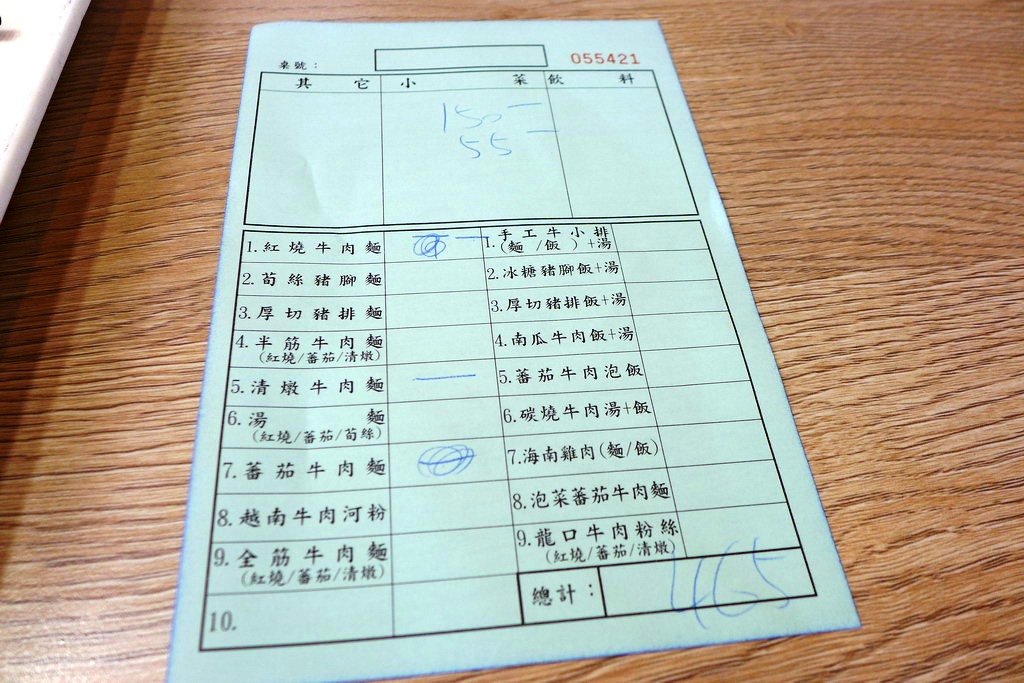 桌號：
055421
其它 小菜 飲料
150 —
55 —
1. 紅燒牛肉麵 —
2. 荀絲豬腳麵
3. 厚切豬排麵
4. 半筋牛肉麵
(紅燒/蕃茄/清燉)
5. 清燉牛肉麵 —
6. 湯麵
(紅燒/蕃茄/荀絲)
7. 蕃茄牛肉麵
8. 越南牛肉河粉
9. 全筋牛肉麵
(紅燒/蕃茄/清燉)
10.
1. 手工牛小排
(麵/飯)+湯
2. 冰糖豬腳飯+湯
3. 厚切豬排飯+湯
4. 南瓜牛肉飯+湯
5. 蕃茄牛肉泡飯
6. 碳燒牛肉湯+飯
7. 海南雞肉(麵/飯)
8. 泡菜蕃茄牛肉麵
9. 龍口牛肉粉絲
(紅燒/蕃茄/清燉)
總計： 465